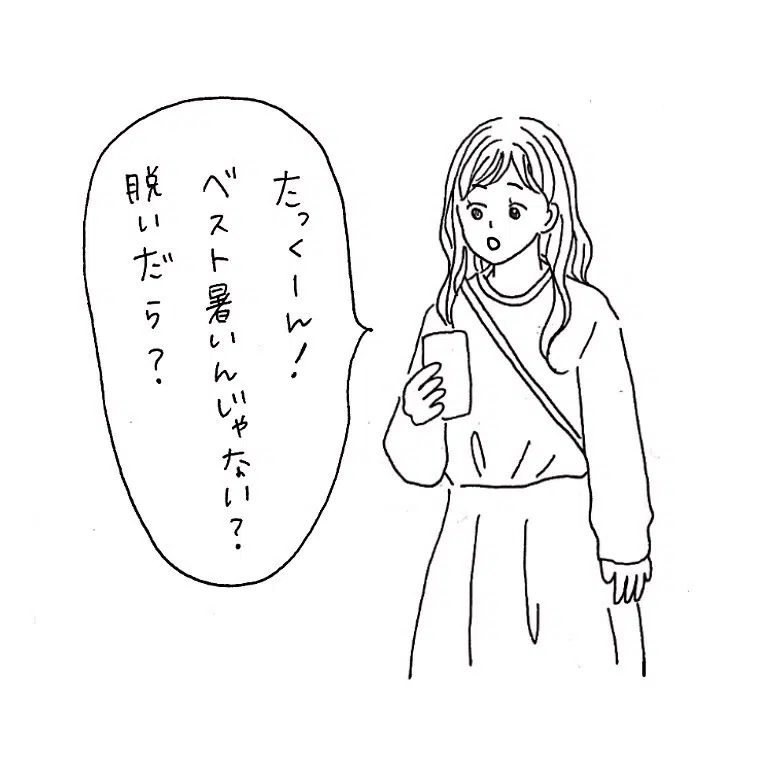 たっくーん!
ベスト暑いんじゃない?
脱いだら?